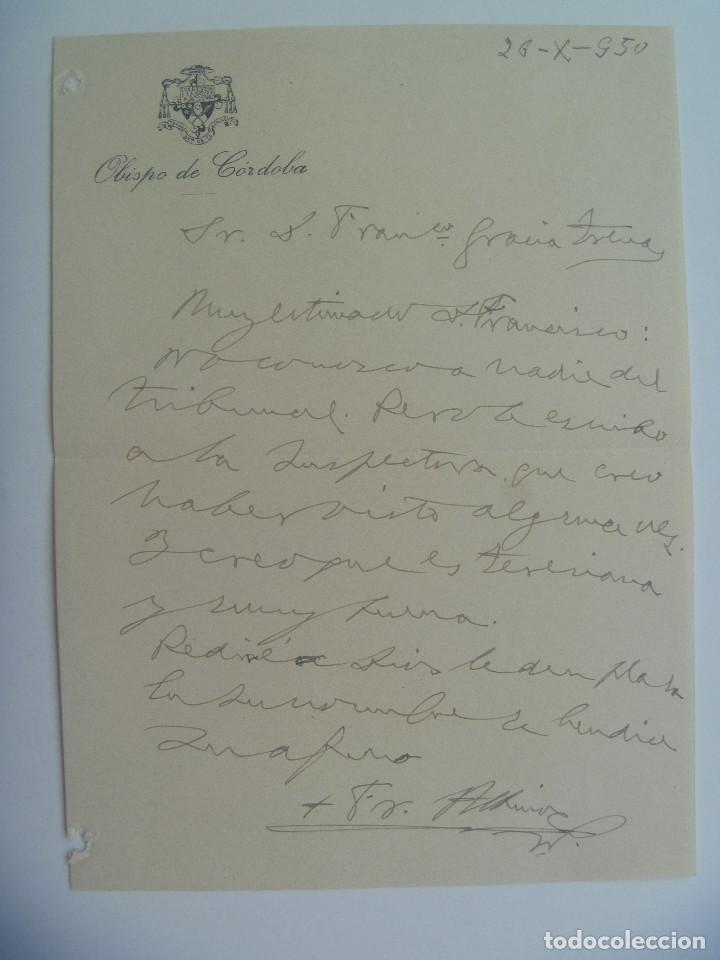 26-X-950
Obispo de Córdoba
Sr. D. Franco. Gracia
Muy estimado D. Francisco:
no conozco a nadie del
tribunal. Pero le escribo
a la Inspectora que creo
haber visto alguna vez.
Y creo que es teresiana
y muy buena.
Pediré a Dios le den plaza
En su nombre le bendice
Su afmo
+ Fr. Albino
todocoleccion.net